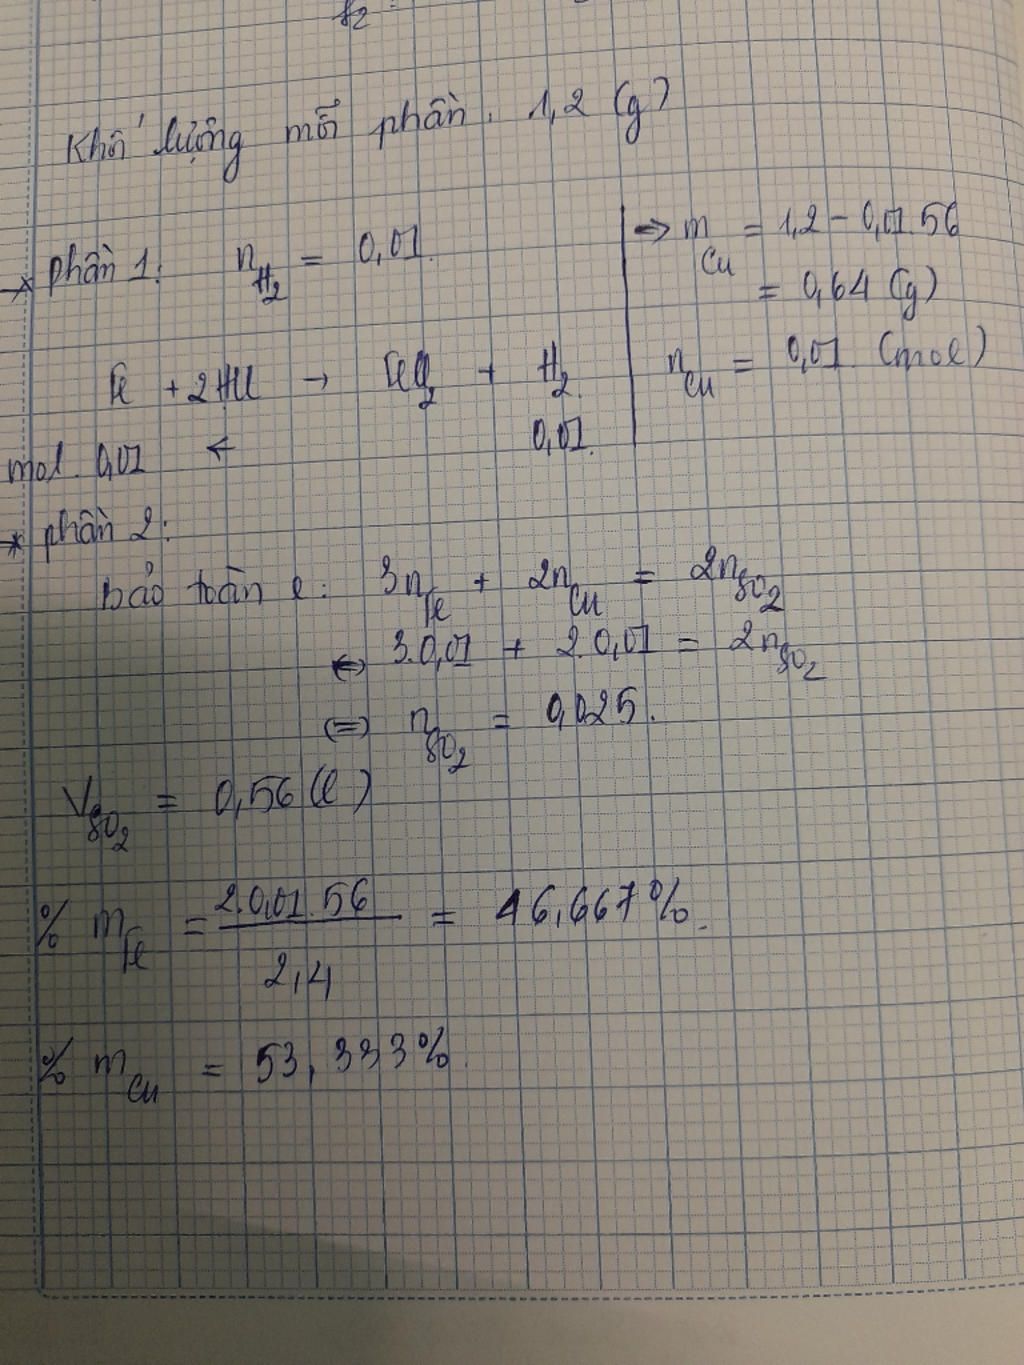 Khối lượng mỗi phần: 1,2 (g)
* phần 1: n H2 = 0,01.
Fe + 2HCl → FeCl2 + H2
mol 0,01 ← 0,01.
=> m Cu = 1,2 - 0,01.56
= 0,64 (g)
n Cu = 0,01 (mol)
* phần 2:
bảo toàn e: 3n Fe + 2n Cu = 2n SO2
<=> 3.0,01 + 2.0,01 = 2n SO2
<=> n SO2 = 0,025.
V SO2 = 0,56 (l)
% m Fe = 2.0,01.56 / 2,4 = 46,667%.
% m Cu = 53,333%.